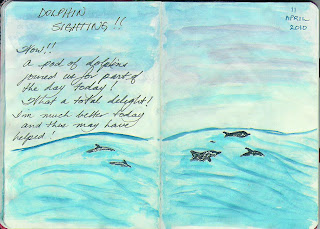 DOLPHIN
SIGHTING!!
Wow!!
A pod of dolphins
joined us for part of
the day today!
What a total delight!
I'm much better today
and this may have
helped!
11
APRIL
2010